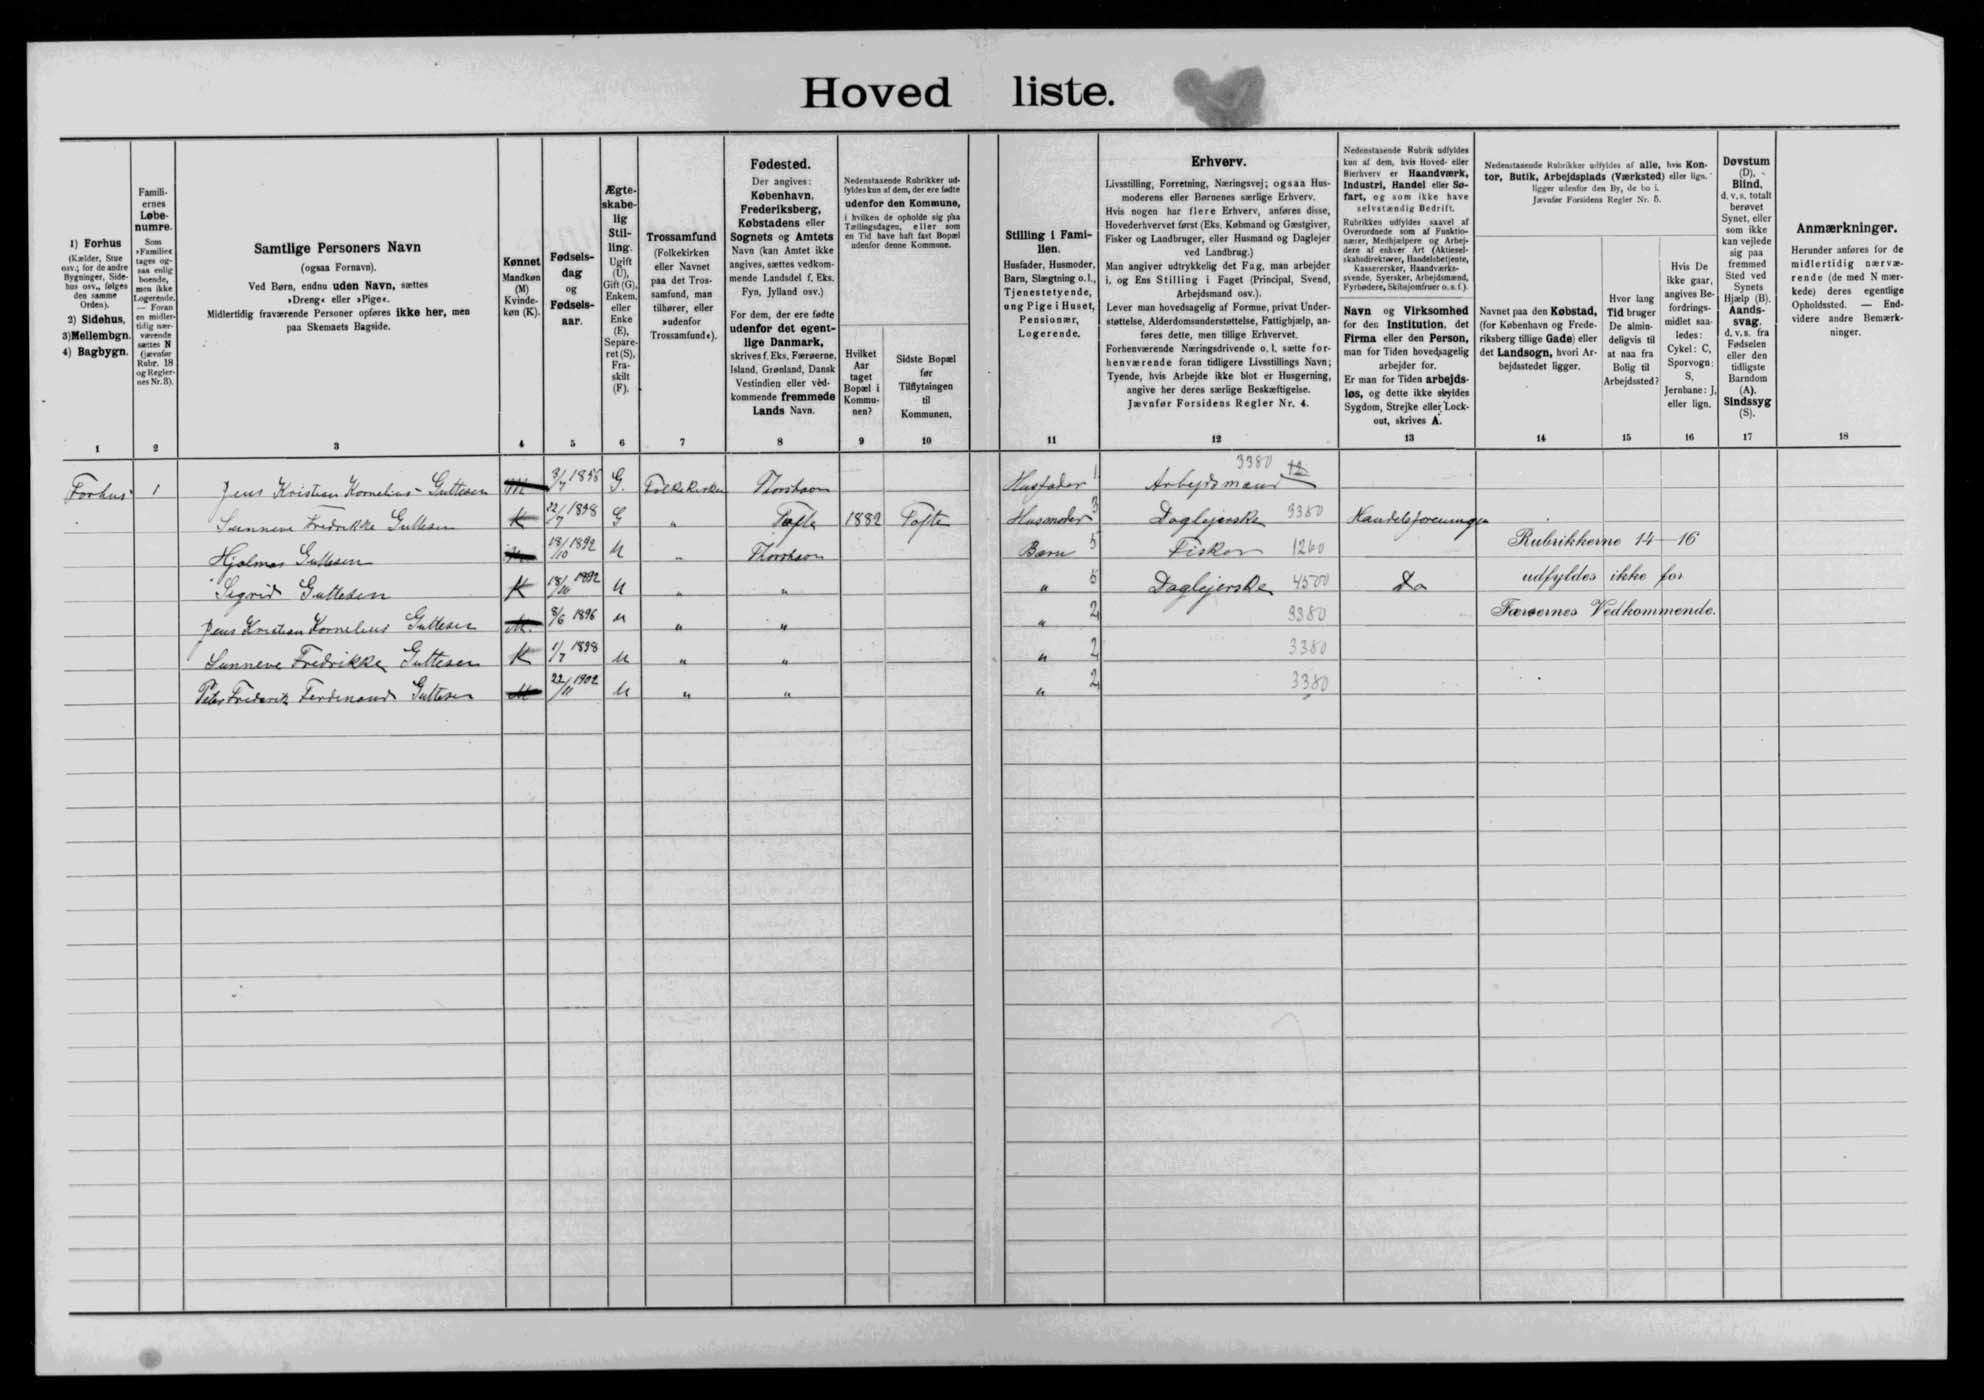 Hoved liste.
1) Forhus
(Kælder, Stue
osv.; for de andre
Bygninger, Side-
hus osv., følges
den samme
Orden).
2) Sidehus,
3) Mellembgn.
4) Bagbygn.
1
Famili-
ernes
Løbe-
numre.
Som
»Familie«
tages og-
saa enlig
boende,
men ikke
Logerende.
— Foran
en midler-
tidig nær-
værende
sættes N
(jævnfør
Rubr. 18
og Regler-
nes Nr. 3).
2
Samtlige Personers Navn
(ogsaa Fornavn).
Ved Børn, endnu uden Navn, sættes
»Dreng« eller »Pige«.
Midlertidig fraværende Personer opføres ikke her, men
paa Skemaets Bagside.
3
Kønnet
Mandkøn
(M)
Kvinde-
køn (K).
4
Fødsels-
dag
og
Fødsels-
aar.
5
Ægte-
skabe-
lig
Stil-
ling.
Ugift
(U),
Gift (G),
Enkem.
eller
Enke
(E),
Separe-
ret (S),
Fra-
skilt
(F).
6
Trossamfund
(Folkekirken
eller Navnet
paa det Tros-
samfund, man
tilhører, eller
»udenfor
Trossamfund«).
7
Fødested.
Der angives:
København,
Frederiksberg,
Købstadens eller
Sognets og Amtets
Navn (kan Amtet ikke
angives, sættes vedkom-
mende Landsdel f. Eks.
Fyn, Jylland osv.)
For dem, der ere fødte
udenfor det egent-
lige Danmark,
skrives f. Eks. Færøerne,
Island, Grønland, Dansk
Vestindien eller ved-
kommende fremmede
Lands Navn.
8
Nedenstaaende Rubrikker ud-
fyldes kun af dem, der ere fødte
udenfor den Kommune,
i hvilken de opholde sig paa
Tællingsdagen, eller som
en Tid have haft fast Bopæl
udenfor denne Kommune.
Hvilket
Aar
taget
Bopæl i
Kommu-
nen?
9
Sidste Bopæl
før
Tilflytningen
til
Kommunen.
10
Stilling i Fami-
lien.
Husfader, Husmoder,
Barn, Slægtning o. l.,
Tjenestetyende,
ung Pige i Huset,
Pensionær,
Logerende.
11
Erhverv.
Livsstilling, Forretning, Næringsvej; ogsaa Hus-
moderens eller Børnenes særlige Erhverv.
Hvis nogen har flere Erhverv, anføres disse,
Hovederhvervet først (Eks. Købmand og Gæstgiver,
Fisker og Landbruger, eller Husmand og Daglejer
ved Landbrug.)
Man angiver udtrykkelig det Fag, man arbejder
i, og Ens Stilling i Faget (Principal, Svend,
Arbejdsmand osv.).
Lever man hovedsagelig af Formue, privat Under-
støttelse, Alderdomsunderstøttelse, Fattighjælp, an-
føres dette, men tillige Erhvervet.
Forhenværende Næringsdrivende o. l. sætte for-
henværende foran tidligere Livsstillings Navn;
Tyende, hvis Arbejde ikke blot er Husgerning,
angive her deres særlige Beskæftigelse.
Jævnfør Forsidens Regler Nr. 4.
12
Nedenstaaende Rubrik udfyldes
kun af dem, hvis Hoved- eller
Bierhverv er Haandværk,
Industri, Handel eller Sø-
fart, og som ikke have
selvstændig Bedrift.
Rubrikken udfyldes saavel af
Overordnede som af Funktio-
nærer, Medhjælpere og Arbej-
dere af enhver Art (Aktiesel-
skabsdirektører, Handelsbetjente,
Kasserersker, Haandværks-
svende, Syersker, Arbejdsmænd,
Fyrbødere, Skibsjomfruer o. s. f.).
Navn og Virksomhed
for den Institution, det
Firma eller den Person,
man for Tiden hovedsagelig
arbejder for.
Er man for Tiden arbejds-
løs, og dette ikke skyldes
Sygdom, Strejke eller Lock-
out, skrives A.
13
Nedenstaaende Rubrikker udfyldes af alle, hvis Kon-
tor, Butik, Arbejdsplads (Værksted) eller lign.
ligger udenfor den By, de bo i.
Jævnfør Forsidens Regler Nr. 5.
Navnet paa den Købstad,
(for København og Frede-
riksberg tillige Gade) eller
det Landsogn, hvori Ar-
bejdsstedet ligger.
14
Hvor lang
Tid bruger
De almin-
deligvis til
at naa fra
Bolig til
Arbejdssted?
15
Hvis De
ikke gaar,
angives Be-
fordrings-
midlet saa-
ledes:
Cykel: C,
Sporvogn:
S,
Jernbane: J,
eller lign.
16
Døvstum
(D),
Blind,
d. v. s. totalt
berøvet
Synet, eller
som ikke
kan vejlede
sig paa
fremmed
Sted ved
Synets
Hjælp (B).
Aands-
svag,
d. v. s. fra
Fødselen
eller den
tidligste
Barndom
(A).
Sindssyg
(S).
17
Anmærkninger.
Herunder anføres for de
midlertidig nærvæ-
rende (de med N mær-
kede) deres egentlige
Opholdssted. — End-
videre andre Bemærk-
ninger.
18
Forhus 1 Jens Kristian Kornelius Guttesen M 3/7 G. Folkekirken Thorshavn Husfader 1 Arbejdsmand 3380 12
Sunneve Fredrikke Guttesen K 22/7 G " Tofte 1882 Tofte Husmoder 3 Daglejerske 3380 Handelsforeningen
Hjalmar Guttesen M 18/10 1892 U " Thorshavn Barn 5 Fisker 1260 Rubrikkerne 14-16
Sigrid Guttesen K 18/10 1892 U " " " 5 Daglejerske 4500 Do udfyldes ikke for
Jens Kristian Kornelius Guttesen M. 8/6 1896 U " " " 2 3380 Færøernes Vedkommende.
Sunneve Fredrikke Guttesen K 1/7 1898 U " " " 2 3380
Peter Frederik Ferdinand Guttesen M 22/11 1902 U " " " 2 3380